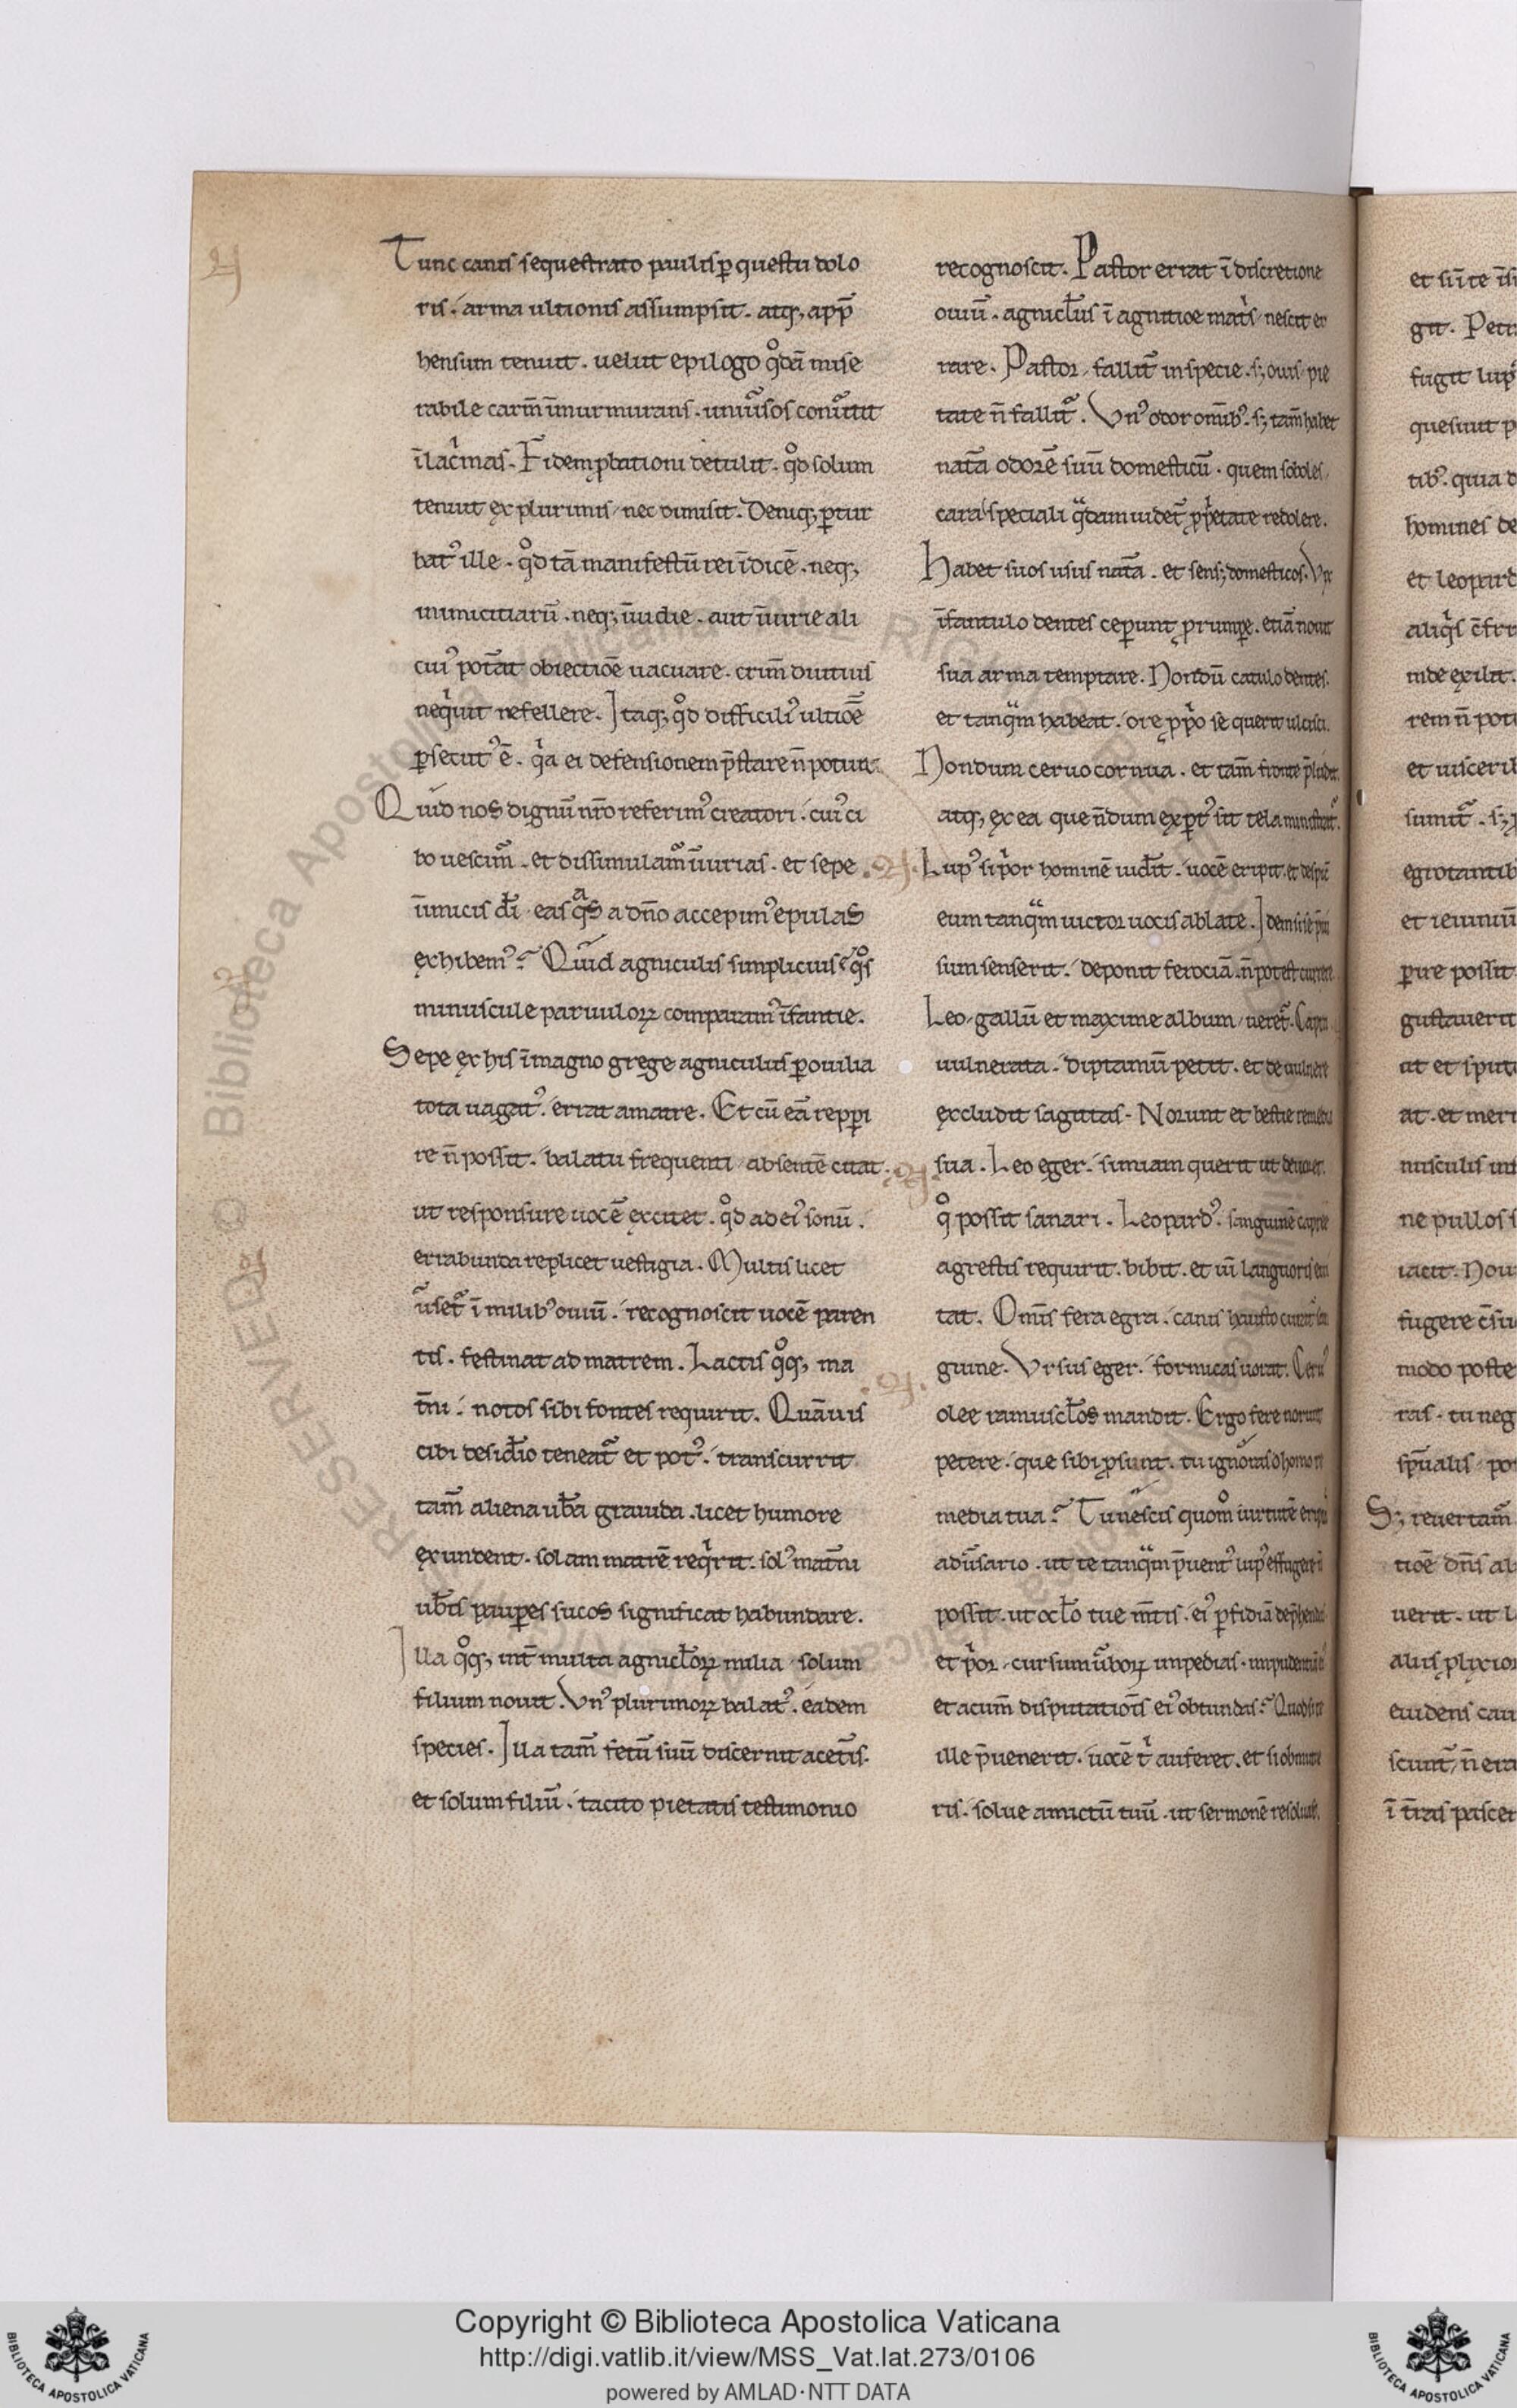 Tunc canis sequestrato paulisꝑ questu dolo
ris. arma ultionis assumpsit. atq; app̄
hensum tenuit. uelut epilogo qͦdā mise
rabile carm̄ īmurmurans. uniuͥsos conuͥtit
ī lacͥmas. Fidem ꝓbationi detulit. qͦd solum
tenuit ex plurimis nec dimisit. Deniq; ꝑtur
batꝰ ille. qͦd tā manifestū rei īdicē. neq;
inimicitiarū. neq; īuidie. aut īiurie ali
cuiꝰ pot̄at obiectiōe uacuare. crim̄ diutius
neqͥuit refellere. Itaq; qͦd difficiliꝰ ultiōē
ꝑsecutꝰ ē. qͥa ei defensionem p̄stare n̄ potuit.
Quid nos dignū nr̄o referimꝰ creatori. cuiꝰ ci
bo uescim̃. et dissimulam̃ īiurias. et sepe
īimicis dī. eas qͣs a dn̄o accepimꝰ epulas
exhibemꝰ? Quid agniculis simplicius? qͦs
minuscule paruuloꝝ comparamꝰ īfantie.
Sepe ex his ī magno grege agniculus ꝑ ouilia
tota uagatꝰ. errat a matre. Et cū eā repꝑi
re n̄ possit. balatu frequenti absentē citat.
ut responsure uocē excitet. qͦd ad eiꝰ sonū.
errabunda replicet uestigia. Multis licet
ũset̃ ī milibꝰ ouiū. recognoscit uocē paren
tis. festinat ad matrem. Lactis qͦq; ma
t̄ni. notos sibi fontes requirit. Quāuis
cibi desid̄io teneat̃ et potꝰ. transcurrit
tam̄ aliena ub̄a grauida. licet humore
exundent. solam matrē reqͥrit. solꝰ mat̄ni
ub̄is pauꝑes sucos significat habundare.
Illa qͦq; int̄ multa agnicl̄oꝝ milia solum
filium nouit. Vnꝰ plurimoꝝ balatꝰ. eadem
species. Illa tam̄ fetū suū discernit a cet̄is.
et solum filiū. tacito pietatis testimonio
recognoscit. Pastor errat ī discretione
ouiū. agnicl̄us ī agnitioe matͥs nescit er
rare. Pastor fallit̃ in specie. s; ouis pie
tate n̄ fallit̃. Vnꝰ odor omībꝰ. s; tam̄ habet
nat̄a odorē suū domesticū. quem soboles
cara speciali qͣdam uidet̃ ꝓpͥetate redolere.
Habet suos usus nat̄a. et sens; domesticos. Vix
īfantulo dentes ceꝑunt ꝓrumꝑe. etiā nouit
sua arma temptare. Nondū catulo dentes.
et tanqͣm habeat. ore ꝓpͥo se querit ulcisci.
Nondum ceruo cornua. et tam̄ fronte p̄ludit.
atq; ex ea que n̄dum exꝑtꝰ sit tela minitat̃.
Lupꝰ si pͥor hominē uid̄it. uocē eripit. et despic̄
eum tanqͣm uictor uocis ablate. Idem si se p̄ui
sum senserit. deponit ferociā. n̄ potest currere
Leo gallū et maxime album ueret̃. Capra
uulnerata. diptamū petit. et de uulnere
excludit sagittas. Norunt et bestie remedia
sua. Leo eger. simiam querit ut deuoret.
qͦ possit sanari. Leopardꝰ. sanguinē capre
agrestis requirit. bibit. et uī languoris eui
tat. Omīs fera egra. canis hausto curat̃ san
guine. Vrsus eger. formicas uorat. Ceruꝰ
olee ramuscl̄os mandit. Ergo fere norunt
petere. que sibi ꝓsunt. tu ignoras o homo re
media tua? Tu nescis quom̊ uirtutē eripias
adũsario. ut te tanqͣm p̄uentꝰ lupꝰ effugere n̄
possit. ut ocl̄o tue m̄tis. eiꝰ ꝑfidiā dep̄hendas
et pͥor cursum ũboꝝ impedias. impudentiā eiꝰ
et acum̄ disputatiōis eiꝰ obtundas? Quod si te
ille p̄uenerit. uocē tͥ auferet. et si obmute
ris. solue amictū tuū. ut sermonē resoluas.
Copyright © Biblioteca Apostolica Vaticana
http://digi.vatlib.it/view/MSS_Vat.lat.273/0106
powered by AMLAD·NTT DATA